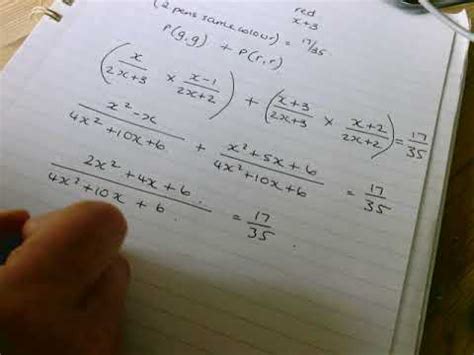 red
x+3
(2 pens same colour) = 17/35
P(g,g) + P(r,r)
(x/2x+3 × x-1/2x+2) + (x+3/2x+3 × x+2/2x+2) = 17/35
x²-x/4x²+10x+6 + x²+5x+6/4x²+10x+6 = 17/35
2x²+4x+6/4x²+10x+6 = 17/35